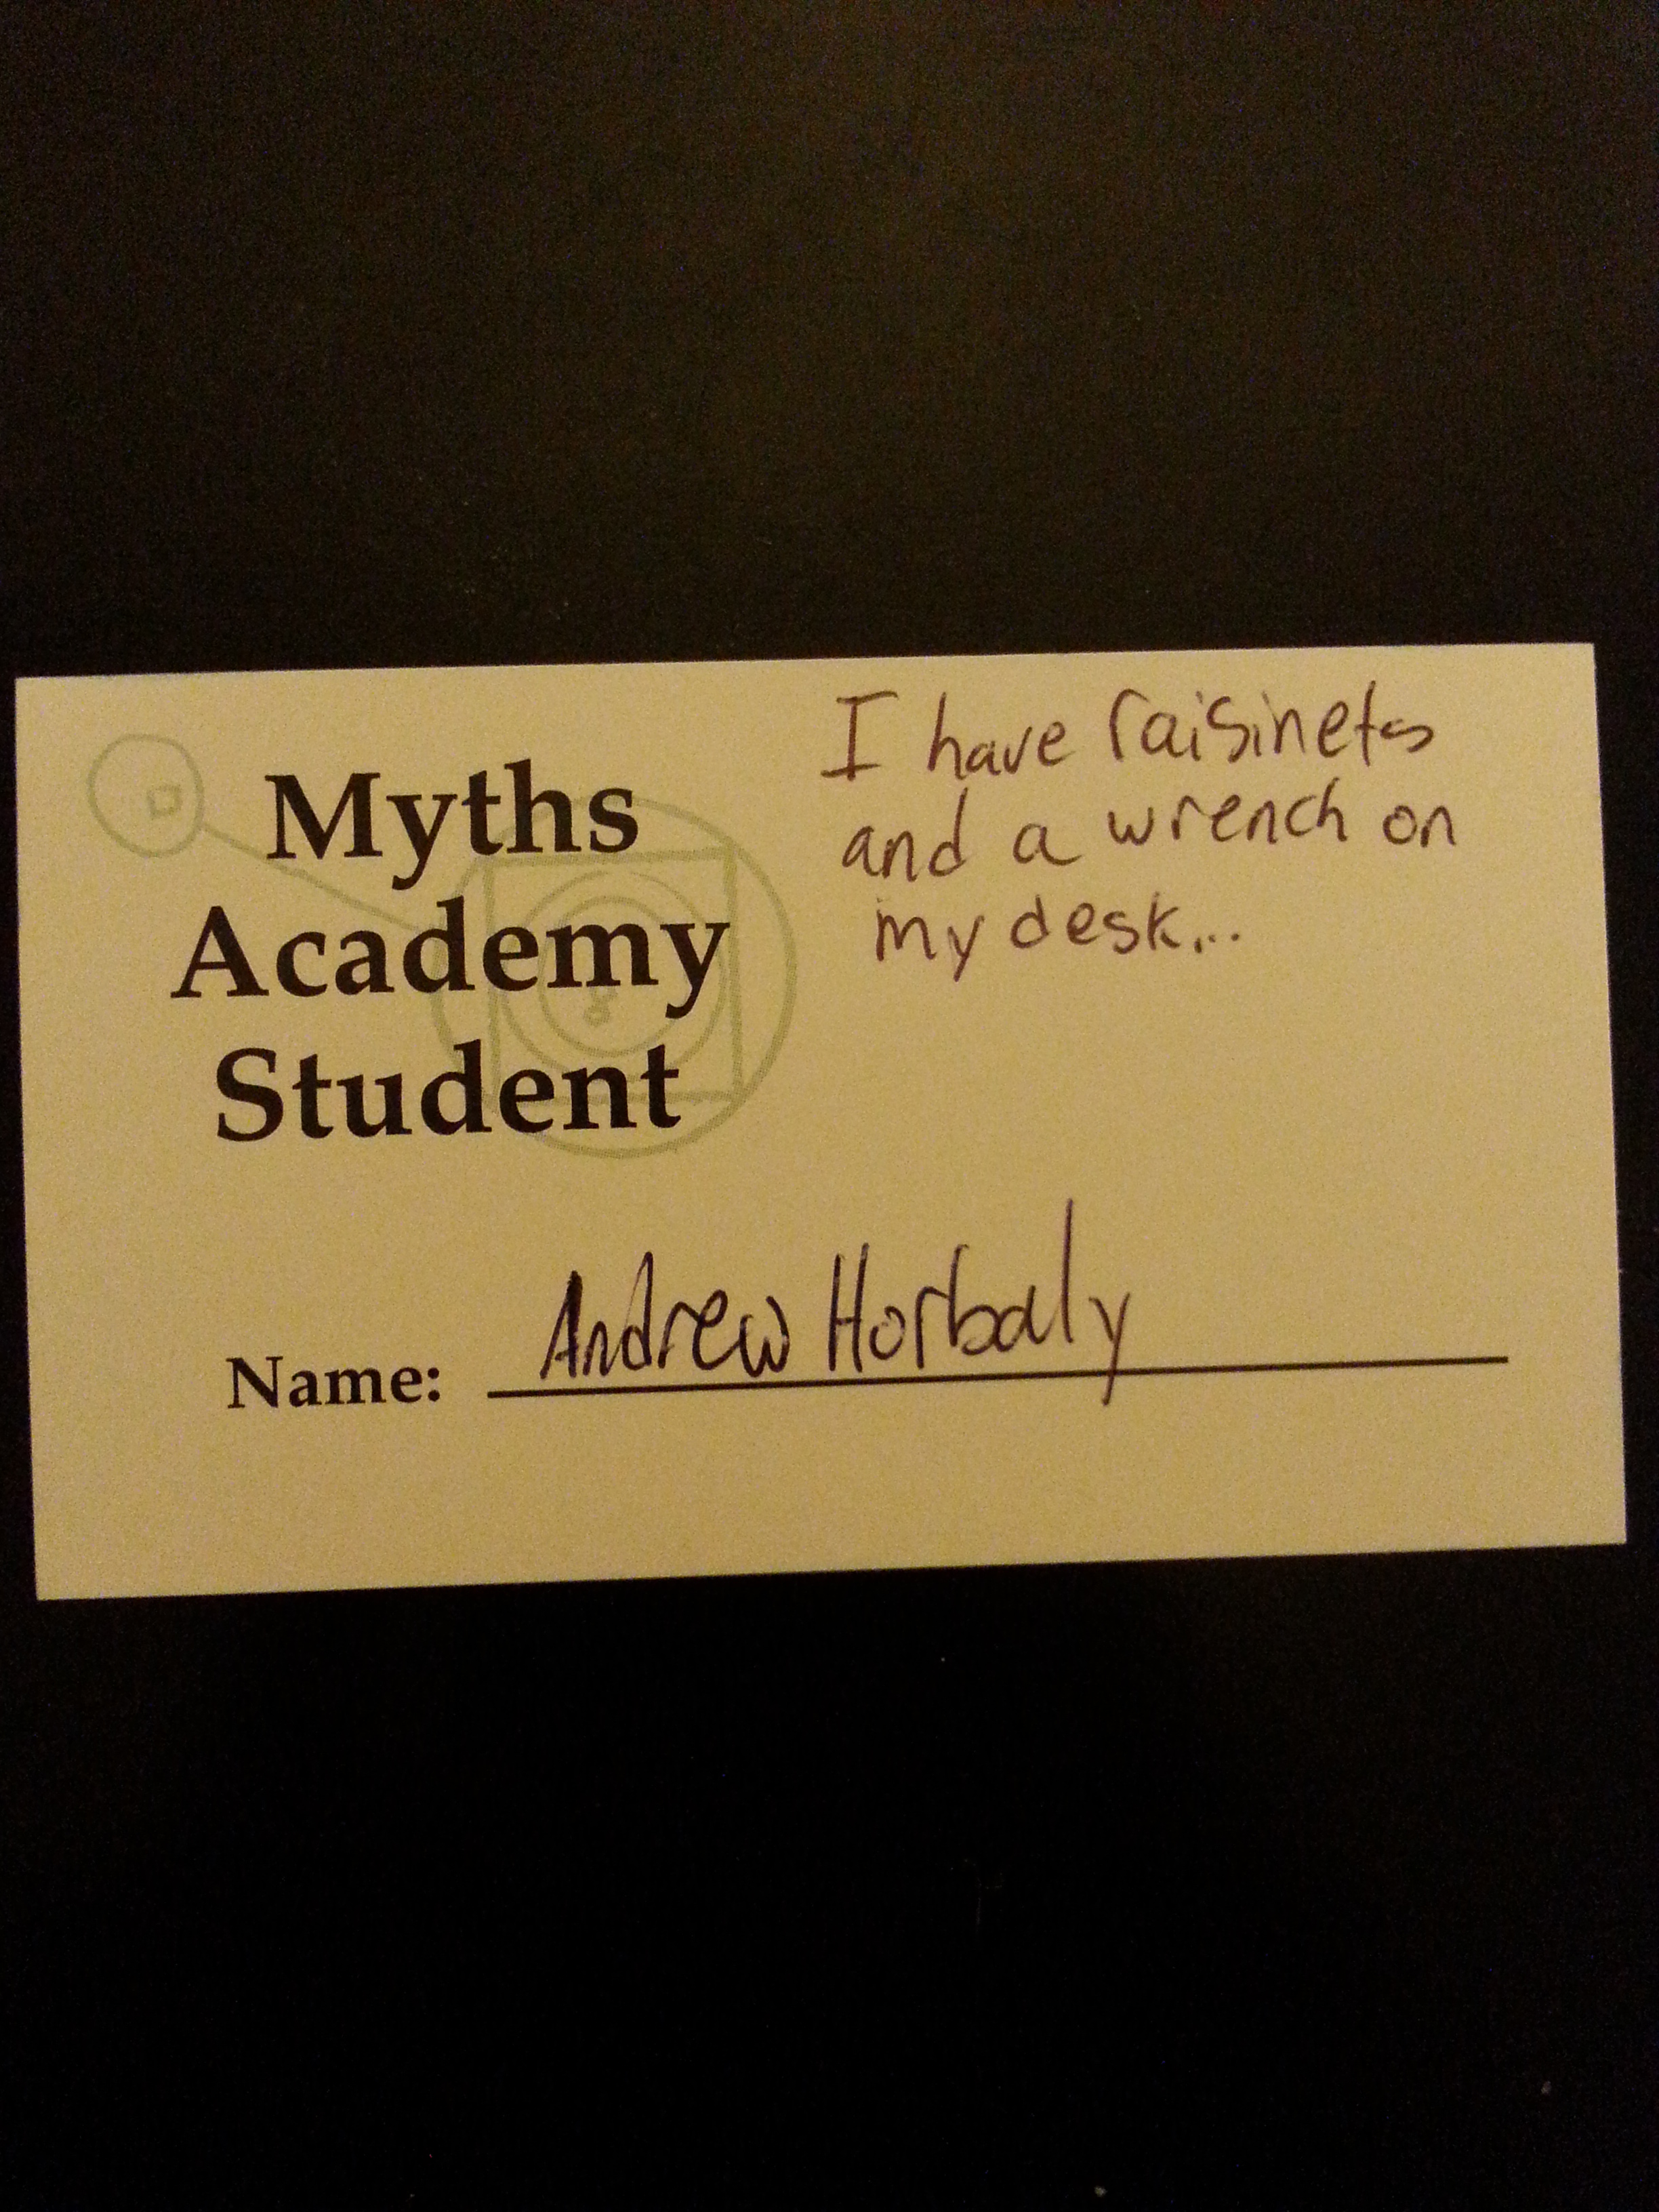 Myths
Academy
Student
I have raisinets
and a wrench on
my desk...
Name: Andrew Horbaly